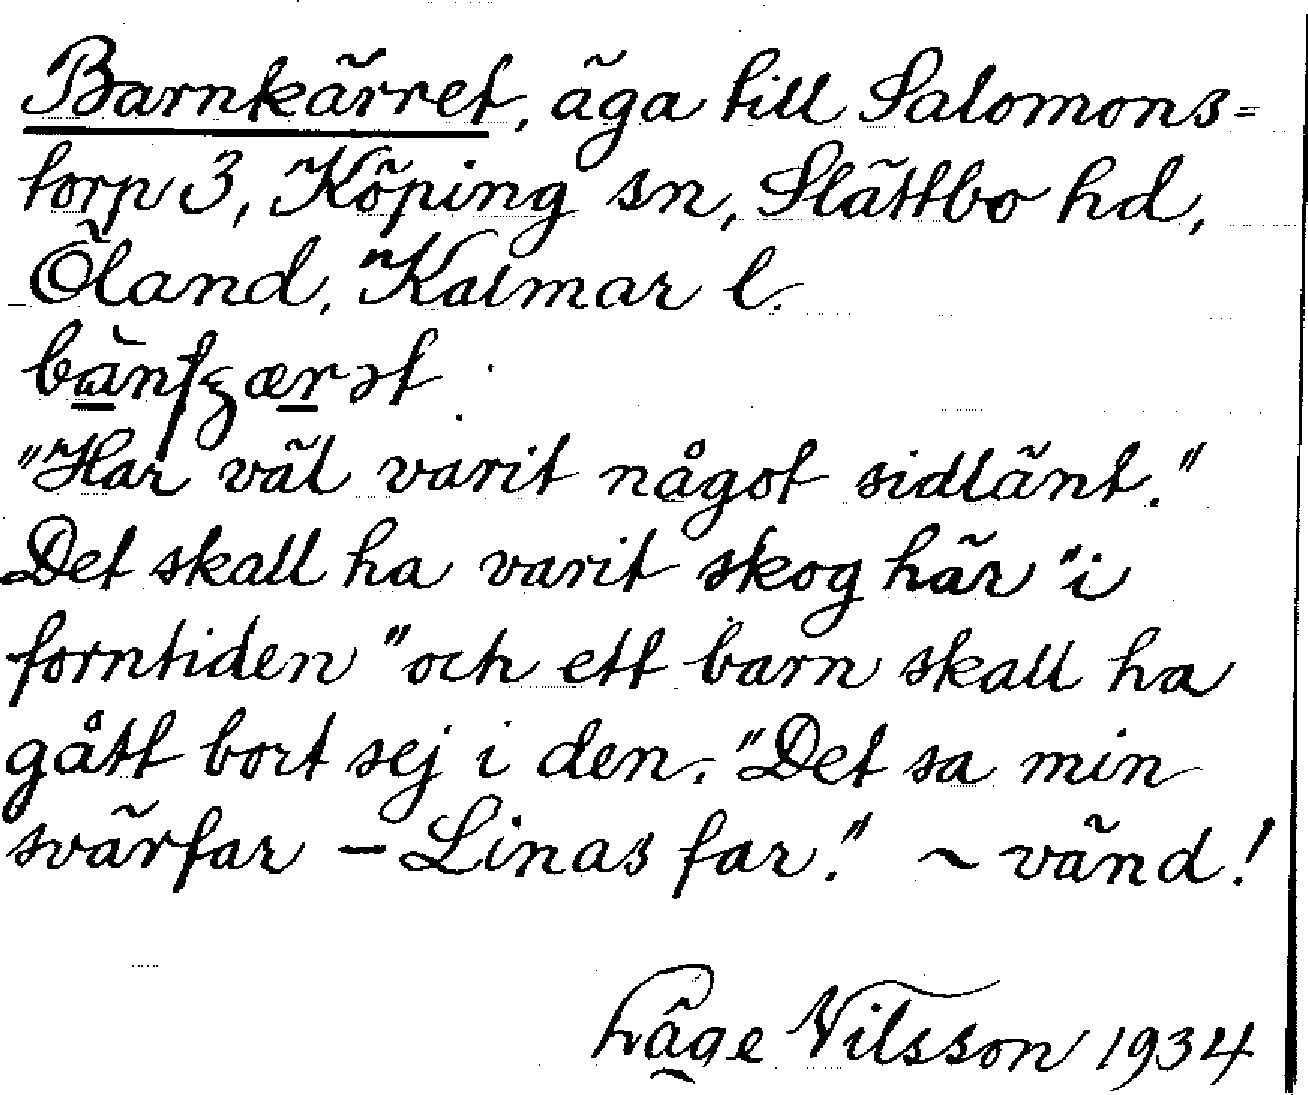 Barnkärret, äga till Salomons=
torp 3, Köping sn, Slättbo hd,
Öland, Kalmar l.
"Har väl varit något sidlänt."
Det skall ha varit skog här "i
forntiden" och ett barn skall ha
gått bort sej i den. "Det sa min
svärfar – Linas far." ~ vänd!
Nilsson 1934